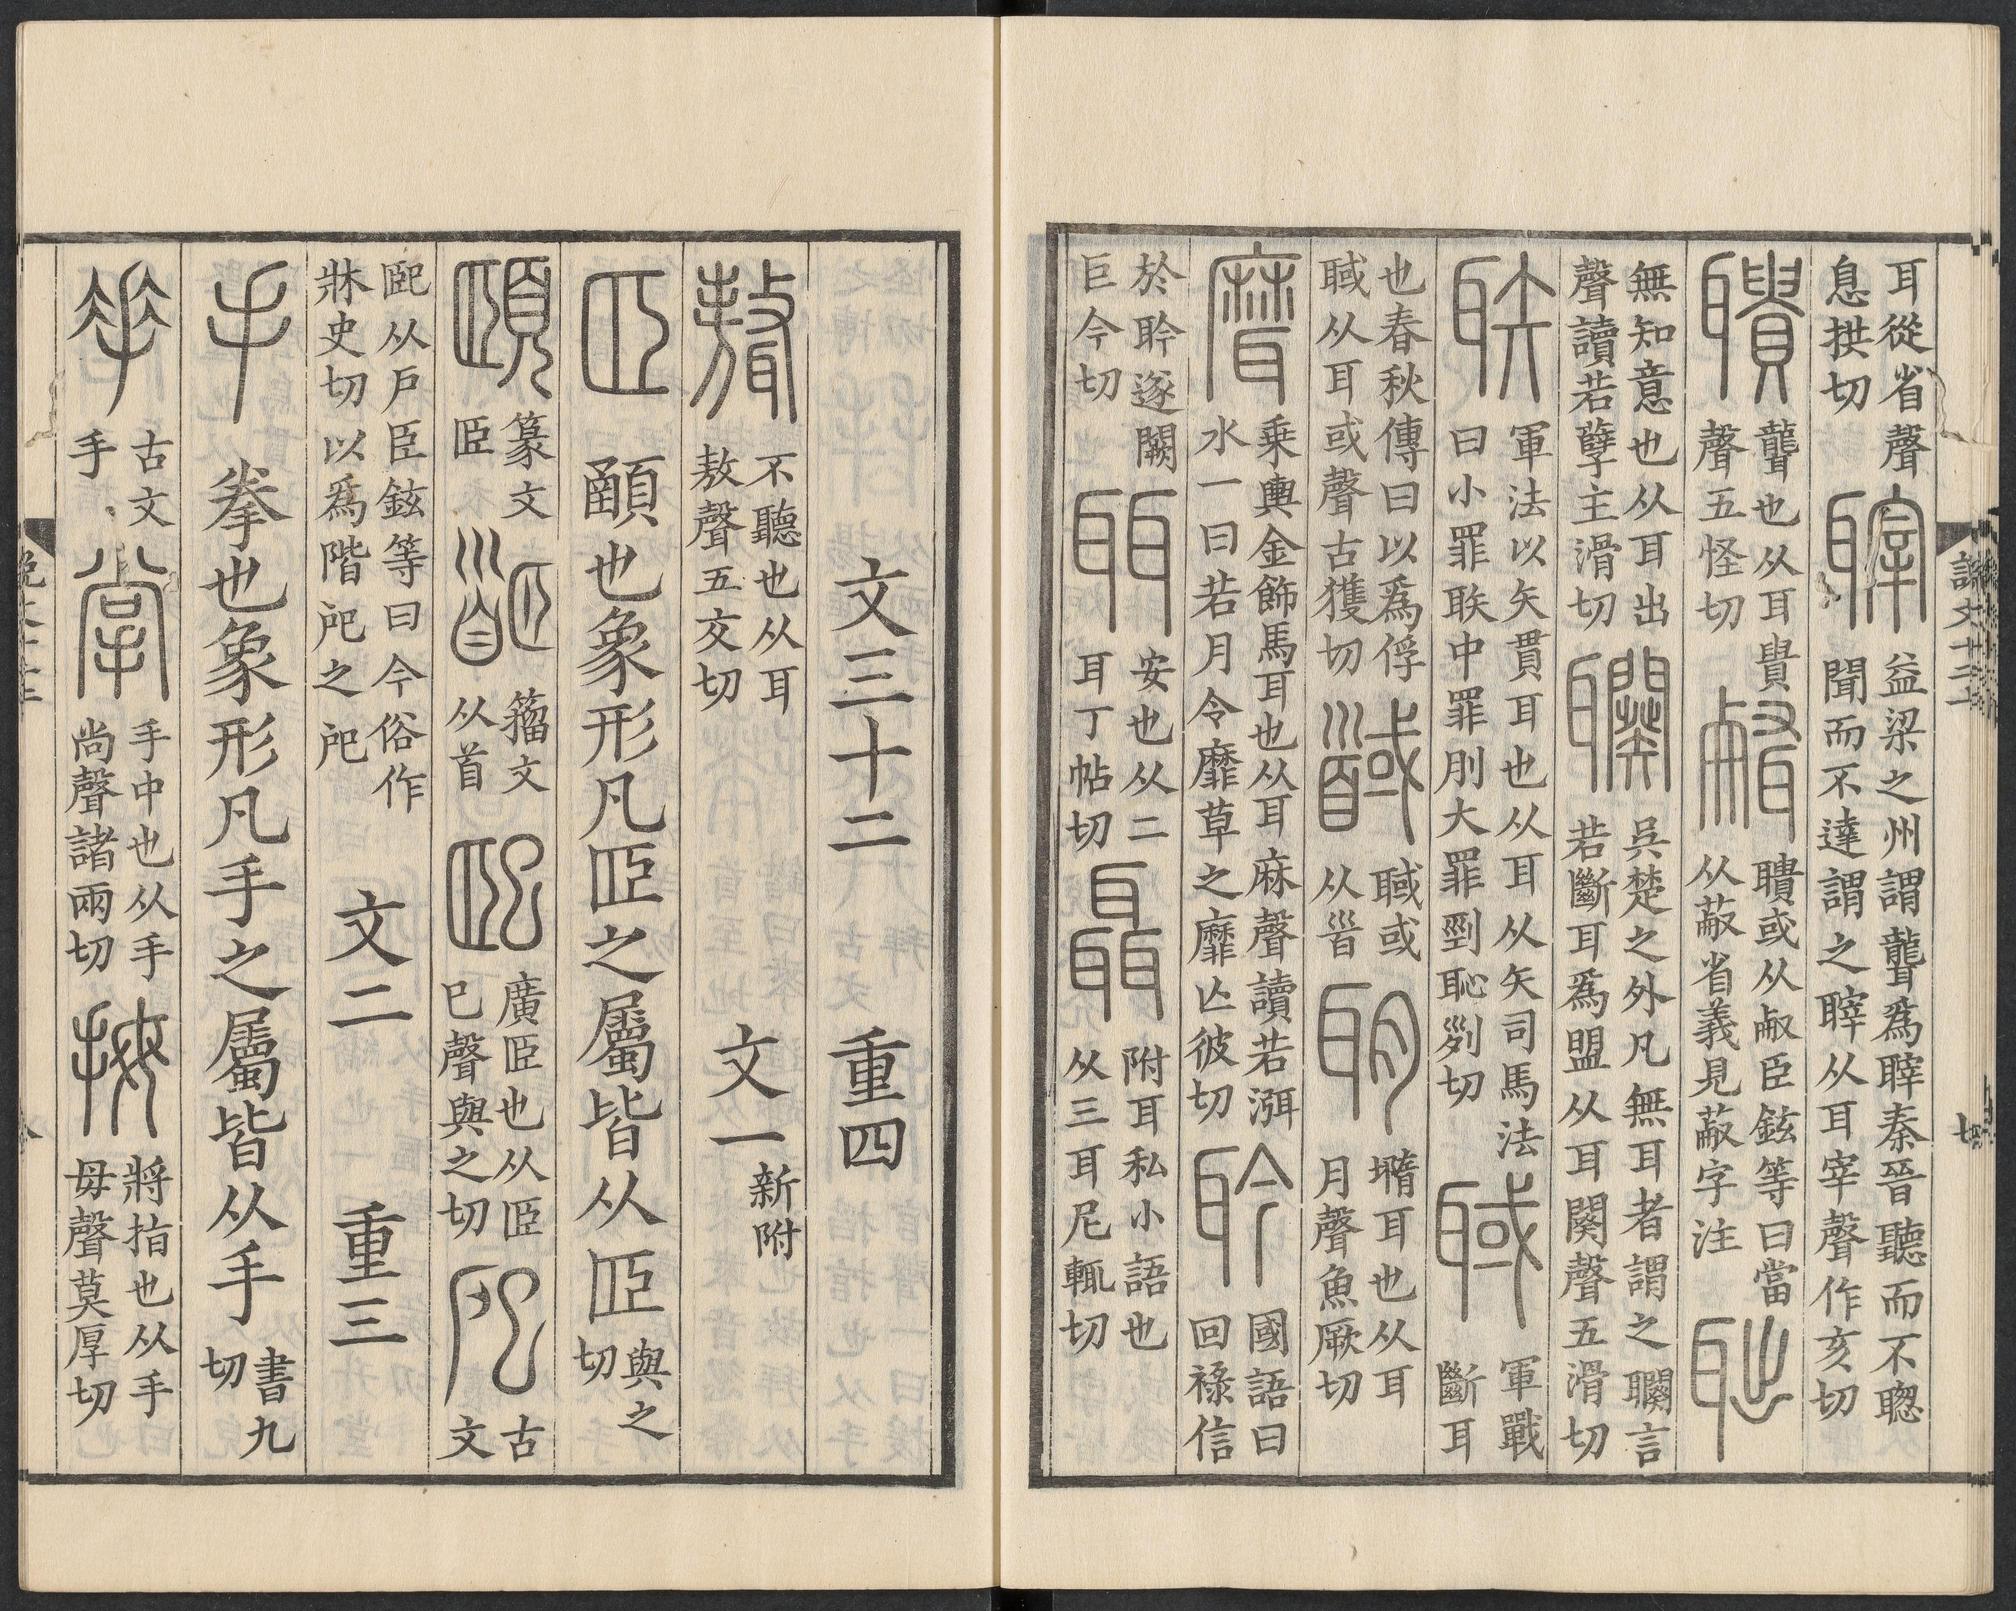 耳從省聲息拱切 䏁 益梁之州謂聾爲䏁秦晉聽而不聦聞而不達謂之䏁从耳宰聲作亥切
聵 聾也从耳貴聲五怪切 𦖭 聵或从㕟臣鉉等曰當从蔽省義見蔽字注 聉
無知意也从耳出聲讀若孽五滑切 𦗿 吳楚之外凡無耳者謂之𦗿言若斷耳爲盟从耳闋聲五滑切
聅 軍法以矢貫耳也从耳从矢司馬法曰小罪聅中罪刖大罪剄恥列切 聝 軍戰斷耳
也春秋傳曰以爲俘聝从耳或聲古獲切 馘 聝或从𩠐 聐 墮耳也从耳月聲魚厥切
𪎮 乗輿金飾馬耳也从耳麻聲讀若渳水一曰若月令靡草之靡亾彼切 聆 國語曰回祿信
於聆遂闕巨今切 耴 安也从二耳丁帖切 聶 附耳私小語也从三耳尼輒切
說文十二上
七
文三十二 重四
聱 不聽也从耳敖聲五交切 文一 新附
𦣞 顄也象形凡𦣞之屬皆从𦣞 與之切
頤 篆文𦣞 𩠡 籀文从首 巸 廣𦣞也从𦣞巳聲與之切 𢨪 古文
巸从戶臣鉉等曰今俗作牀史切以爲階戺之戺 文二 重三
手 拳也象形凡手之屬皆从手 書九切
𠂿 古文手 掌 手中也从手尚聲諸兩切 拇 將指也从手毋聲莫厚切